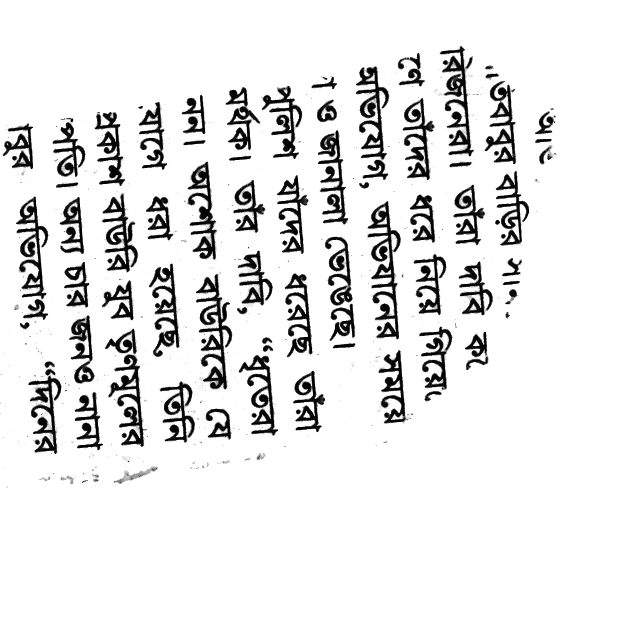 তবাবুর বাড়ির
রিজনেরা। তাঁরা দাবি
তাঁদের ধরে নিয়ে গিয়ে
অভিযোগ, অভিযানের সময়ে
ও জানালা ভেঙেছে।
পুলিশ যাঁদের ধরেছে তাঁরা
মর্থক। তাঁর দাবি, “ধৃতেরা
নন। অশোক বাউরিকে যে
যাগে ধরা হয়েছে, তিনি
প্রকাশ বাউরি যুব তৃণমূলের
পতি। অন্য চার জনও নানা
বাবুর অভিযোগ, “দিনের